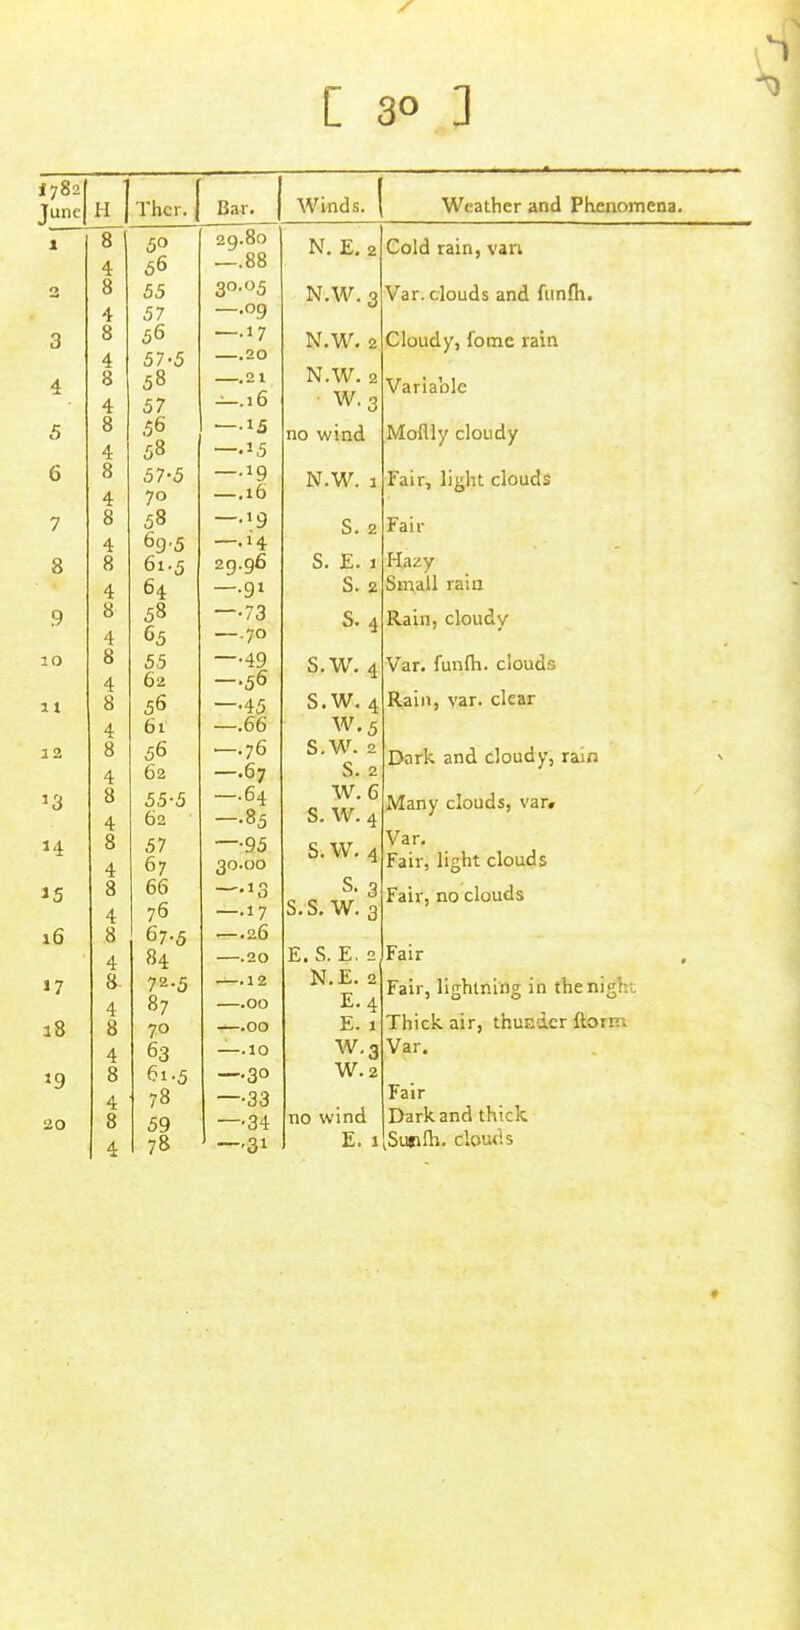 [ 30 ]
1782 June H Ther. Bar. Winds. Weather and Phenomena.
1 8 50 29.80 N. E. 2 Cold rain, var.
4 56 —.88
2 8 55 30.05 N.W. 3 Var. clouds and funſh.
4 57 —.09
3 8 56 —.17 N.W. 2 Cloudy, ſome rain
4 57.5 —.20
4 8 58 —.21 N.W. 2 Variable
4 57 —.16 W. 3
5 8 56 —.15 no wind Moſtly cloudy
4 58 —.15
6 8 57.5 —.19 N.W. 1 Fair, light clouds
4 70 —.16
7 8 58 —.19 S. 2 Fair
4 69.5 —.14
8 8 61.5 29.96 S. E. 1 Hazy
4 64 —.91 S. 2 Small rain
9 8 58 —.73 S. 4 Rain, cloudy
4 65 —.70
10 8 55 —.49 S.W. 4 Var. ſunſh. clouds
4 62 —.56
11 8 56 —.45 S.W. 4 Rain, var. clear
4 61 —.66 W. 5
12 8 56 —.76 S.W. 2 Dark and cloudy, rain
4 62 —.67 S. 2
13 8 55.5 —.64 W. 6 Many clouds, var.
4 62 —.85 S. W. 4
14 8 57 —.95 S. W. 4 Var.
4 67 30.00 Fair, light clouds
15 8 66 —.13 S. 3 Fair, no clouds
4 76 —.17 S.S. W. 3
16 8 67.5 —.26
4 84 —.20 E. S. E. 2 Fair
17 8 72.5 —.12 N.E. 2 Fair, lightning in the night
4 87 —.00 E. 4
18 8 70 —.00 E. 1 Thick air, thunder ſtorm
4 63 —.10 W. 3 Var.
19 8 61.5 —.30 W. 2
4 78 —.33 Fair
20 8 59 —.34 no wind Dark and thick
4 78 —.31 E. 1 Sunſh. clouds